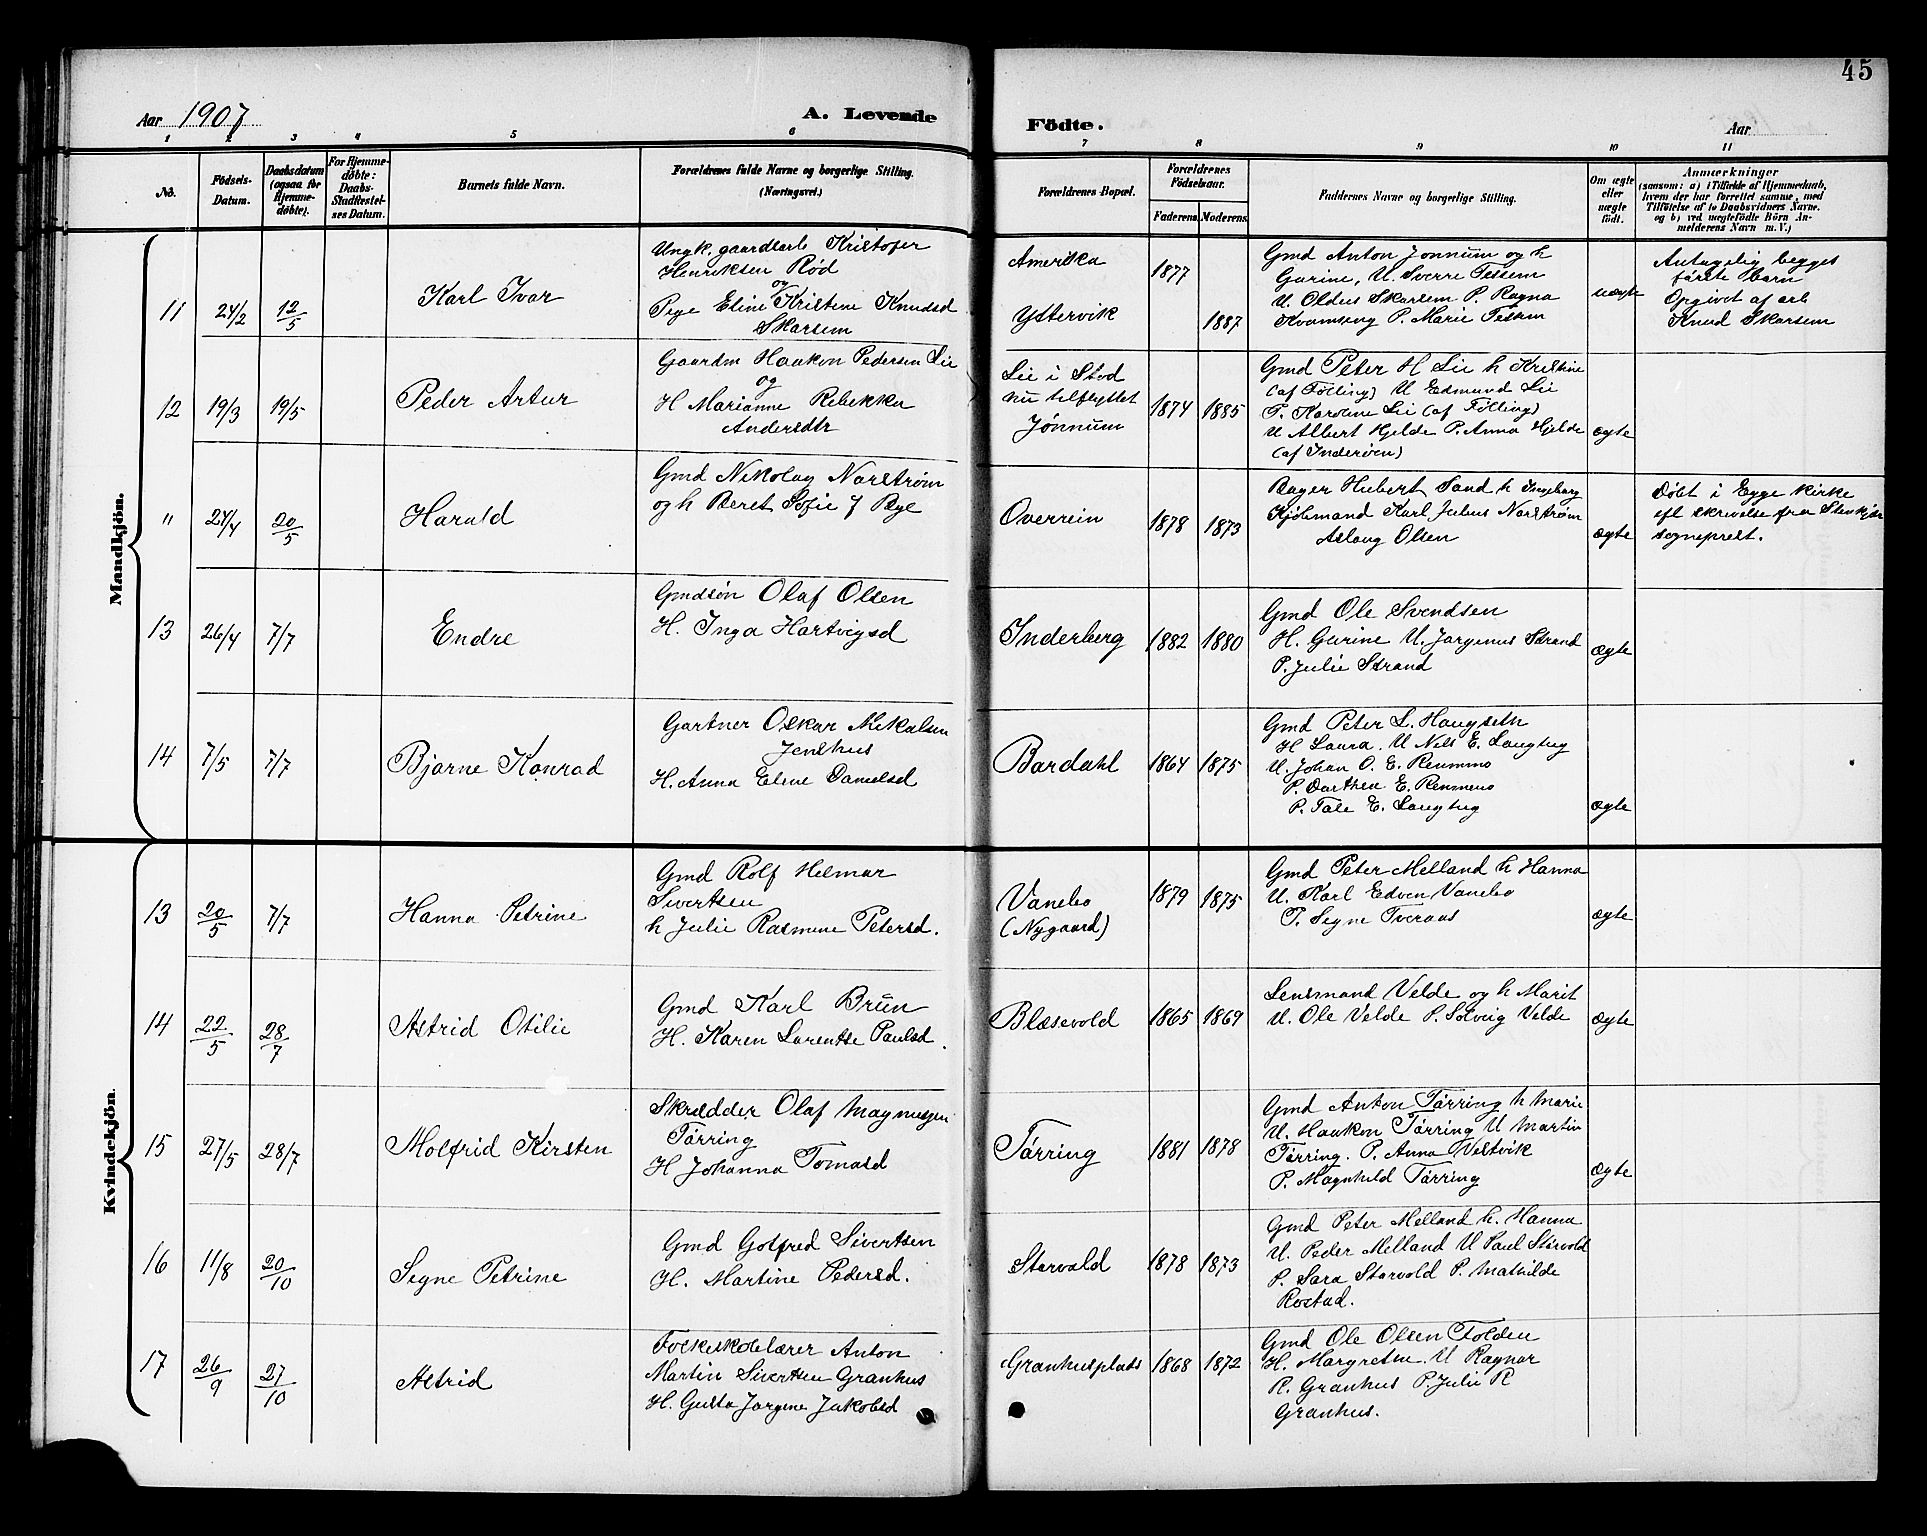 45
Aar 1907
A. Levende
Födte.
Aar
1 2 3 4 5 6 7 8 9 10 11
No.
Födsels-
Datum.
Daabsdatum
(ogsaa for
Hjemme-
døbte).
For Hjemme-
døbte:
Daabs-
Stadfæstel-
ses Datum.
Barnets fulde Navn.
Forældrenes fulde Navne og borgerlige Stilling.
(Næringsvei.)
Forældrenes Bopæl.
Forældrenes
Födselsaar.
Faderens. Moderens.
Faddernes Navne og borgerlige Stilling.
Om ægte
eller
uægte
født.
Anmærkninger
(saasom: a) i Tilfælde af Hjemmedaab,
hvem der har forrettet samme, med
Tilføielse af to Daabsvidners Navne.
og b) ved uægtefødte Börn An-
melderens Navn m. V.)
Mandkjön.
11
24/2
12/5
Karl Ivar
Ungk. gaardkarl Kristofer
Henriksen Rød
og
Pige Eline Kristine Knudsd
Skarsem
Amerika
Ystervik
1877
1887
Gmd Anton Jønnum og h
Gurine, U. Sverre Tessem
U. Oldus Skarsem P. Ragna
Kvamseng P. Marie Tessem
uægte
Antagelig begges
første barn
Opgivet af arb
Knud Skarsem
12
19/3
19/5
Peder Artur
Gaardm Haakon Pedersen Lie
og
H Marianne Rebekka
Andersdtr
Lie i Stod
nu tilflyttet
Jønnum
1874
1885
Gmd Peter H Lie h Kristine
(af Følling) U Edmund Lie
P. Karoline Lie (af Følling)
U Albert Hjelde P. Anna Hjelde
(af Inderøen)
ægte
"
24/4
20/5
Harald
Gmd Nikolay Norstrøm
og h Beret Sofie f Bye
Overrein
1878
1873
Bager Hubert Sand h Ingeborg
Kjøbmand Karl Julius Norstrøm
Aslaug Olsen
ægte
Døbt i Egge kirke
efl skrivelse fra Stenkjær
sogneprest.
13
26/4
7/7
Endre
Gmdsøn Olaf Olsen
H. Inga Hartvigsd
Inderberg
1882
1880
Gmd Ole Svendsen
H. Gurine U. Jørgenus Strand
P. Julie Strand
ægte
14
7/5
7/7
Bjarne Konrad
Gartner Oskar Mikalsen
Jenshus
H. Anna Eline Danielsd
Bardahl
1864
1875
Gmd Peter L. Haugseth
H Laura. U Nels E. Langhug
U. Johan O. E. Remmo
P. Dorthea E. Remmeno
P. Tale E. Langhug
ægte
Kvindekjön.
13
20/5
7/7
Hanna Petrine
Gmd Rolf Helmar
Sivertsen
h Julie Rasmine Petersd.
Vanebo
(Nygaard)
1879
1875
Gmd Peter Melland h Hanna
U. Karl Edven Vanebo
P. Signe Tveraas
ægte
14
22/5
28/7
Astrid Otilie
Gmd Karl Brun
H. Karen Larentse Paulsd.
Blæsevold
1865
1869
Lensmand Velde og h Marit
U. Ole Velde P. Solveig Velde
ægte
15
27/5
28/7
Molfrid Kirsten
Skrædder Olaf Magnussen
Tørring
H Johanna Tomasd
Tørring
1881
1878
Gmd Anton Tørring h Marie
U. Haakon Tørring U Martin
Tørring. P. Anna Vestvik
P. Magnhild Tørring
ægte
16
11/8
20/10
Signe Petrine
Gmd Gotfred Sivertsen
H. Martine Pedersd.
Storvold
1878
1873
Gmd Peter Melland h. Hanna
U. Peder Melland U Paul Storvold
P. Sara Storvold P. Mathilde
Rostad.
17
26/9
27/10
Astrid
Folkeskolelærer Anton
Martin Sivertsen Granhus
H. Gusta Jørgine Jakobsd
Granhusplads
1868
1872
Gmd Ole Olsen Folden
H. Margrethe. U Ragnar
R. Granhus P. Julie R
Granhus.